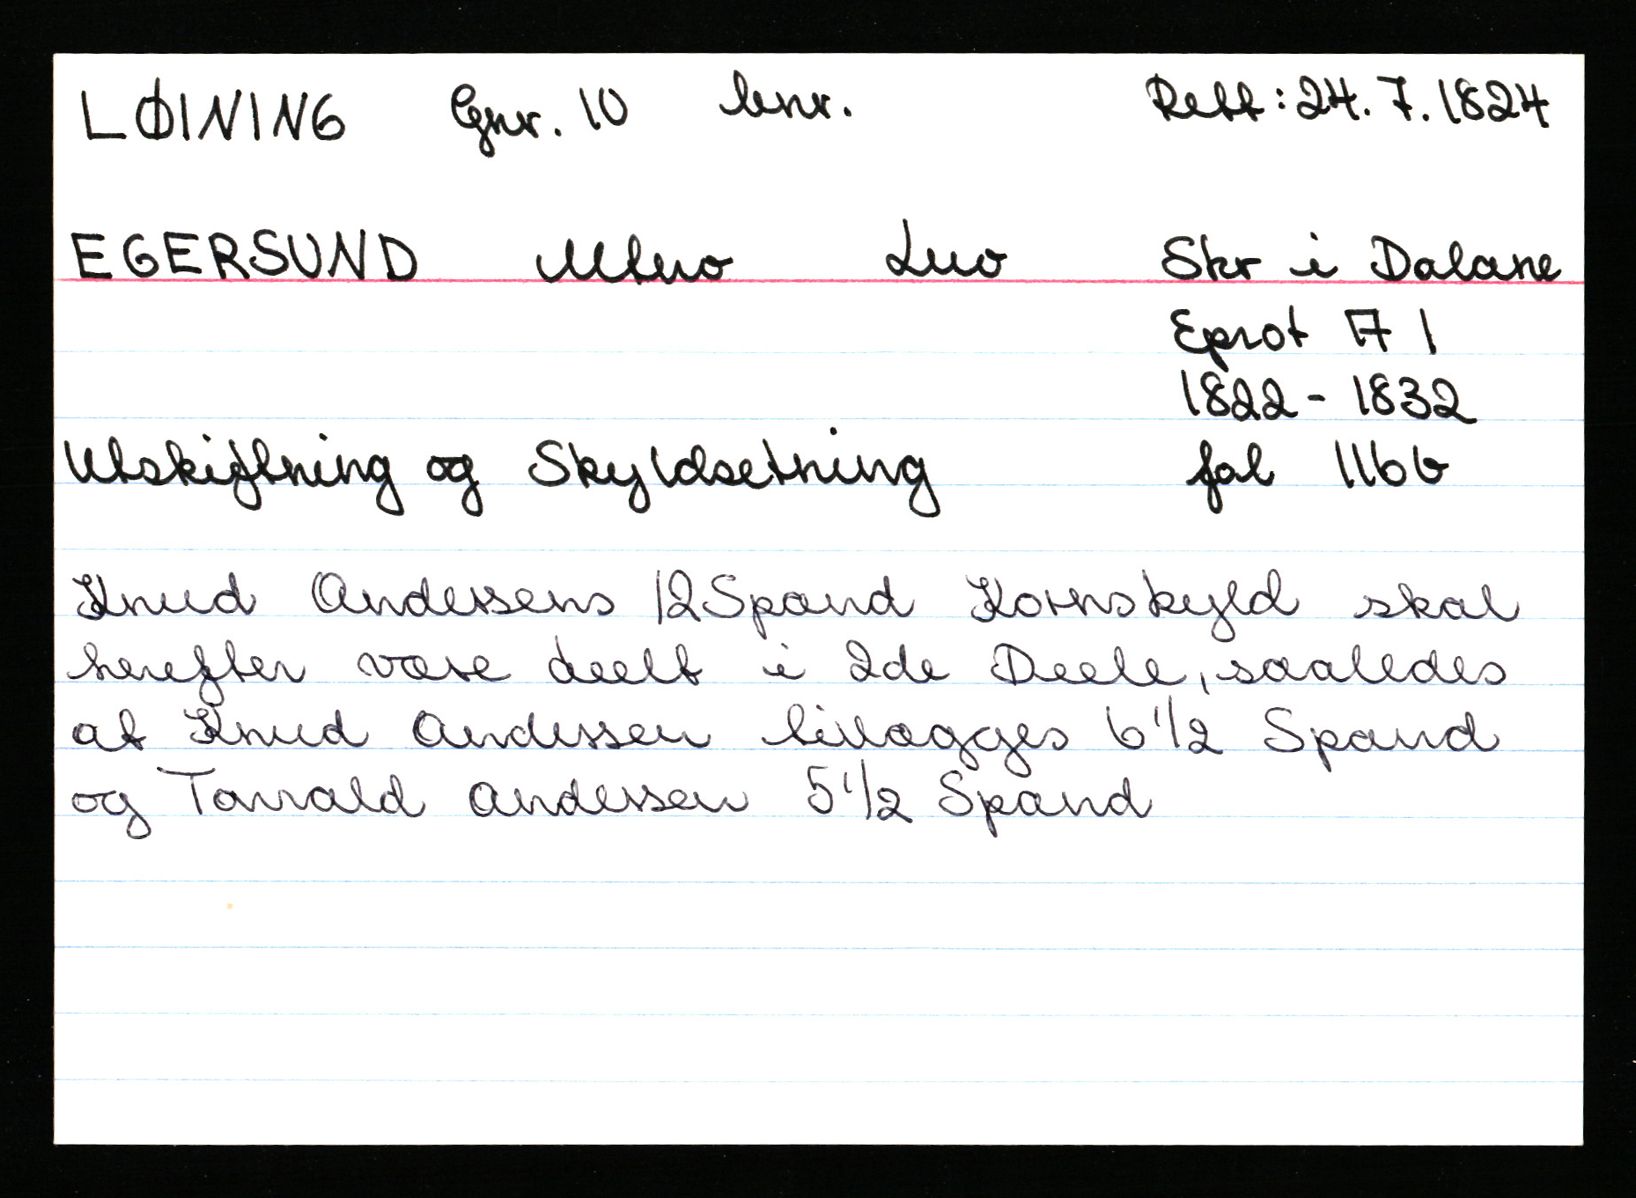 LØINING Gnr. 10 bnr. Rett: 24.7.1824
EGERSUND Skr i Dalane
Eprot A 1
1822 - 1832
Utskiftning og Skyldsetning fol 116b
Knud Anderssens 12 Spand Kornskyld skal
herefter være deelt i 2de Deele, saaledes
at Knud Anderssen tillægges 6 1/2 Spand
og Tarrald Anderssen 5 1/2 Spand